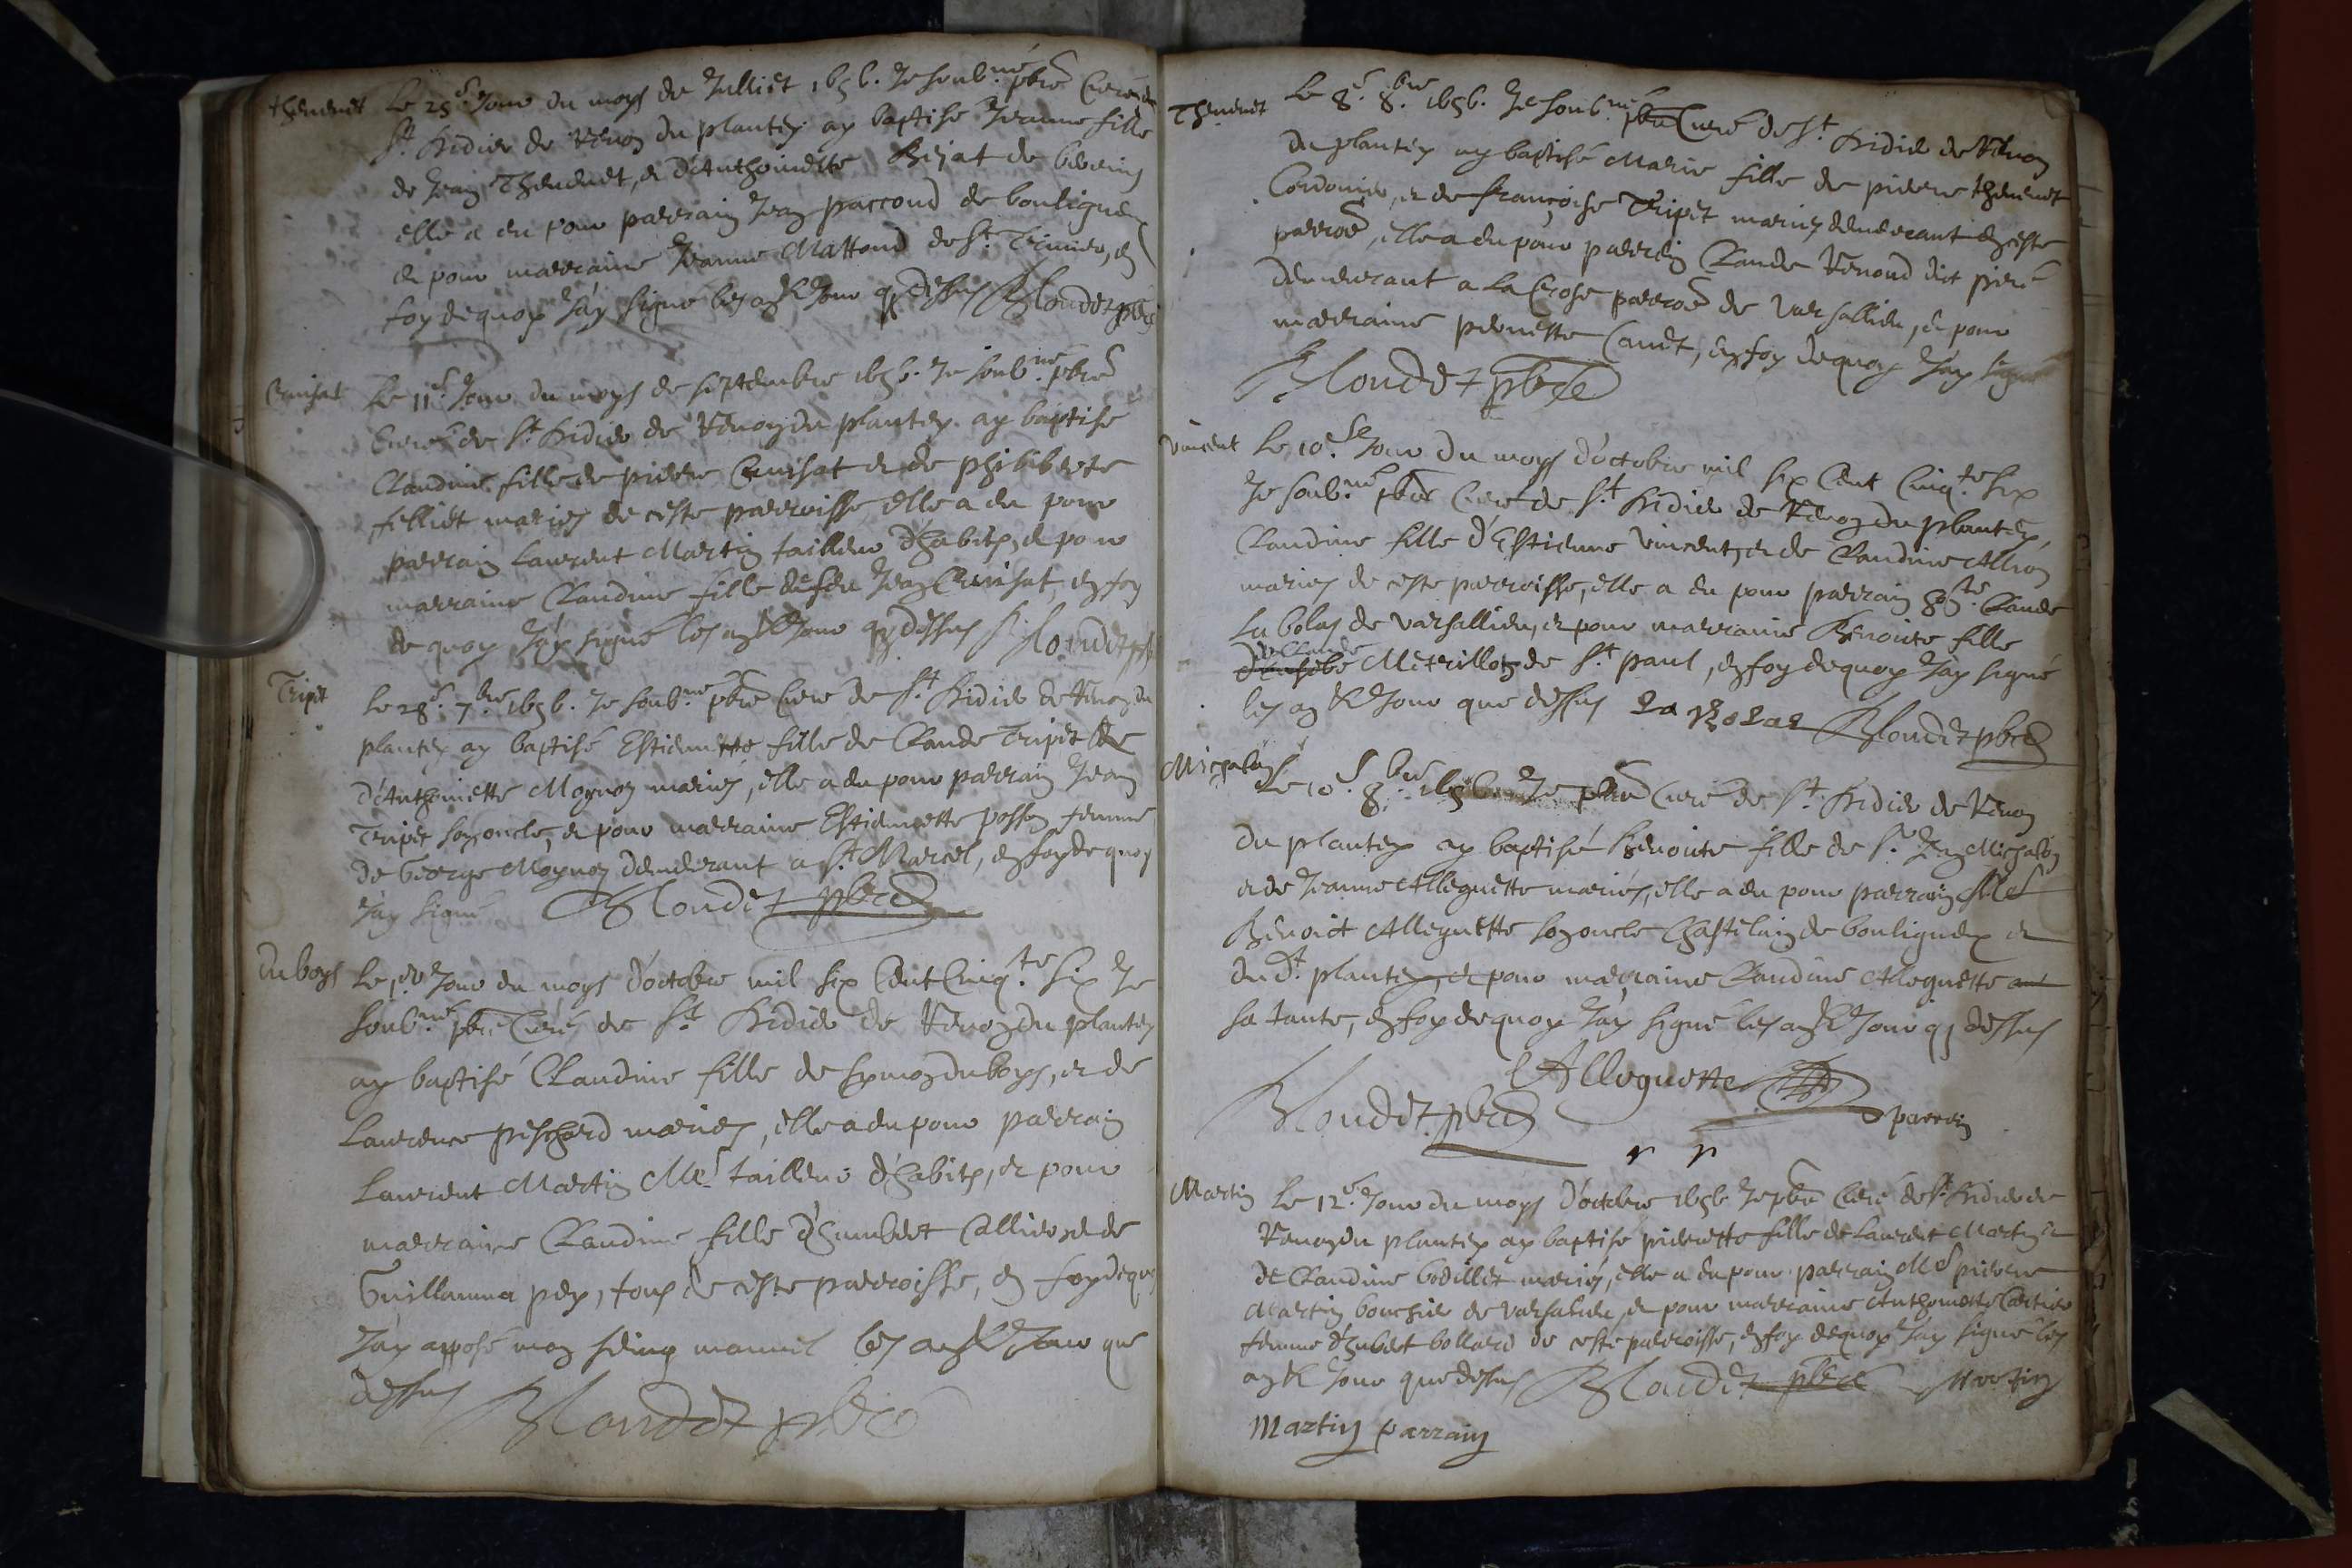 thevenet Le 25.e Jour du moys de Julliet 1656. Je soub.né pbre Curé de
St. Didier de Renon du plantey ay baptisé Jeanne fille
de Jean Thevenet, et d'Anthoinette Béjat de
elle a eu pour parrain Jean paccoud de bouligneu
et pour marraine Jeanne Mattond de St. Trivier, en
foy de quoy Jay signé les an et Jour q dessus Blondet pbre
Cruisat Le 11e. Jour du moys de septembre 1656. Je soub.né pbre
Curé de St. Didier de Renon du plantey ay baptisé
Claudine fille de pierre Cruisat et de philiberte
felliet mariés de ceste parroisse elle a eu pour
parrain Laurent Martin tailleur d'habits, et pour
marraine Claudine fille de feu Jean Cruisat, en foy
de quoy Jay signé les an et Jour q dessus Blondet pbre
Tripet Le 28e. 7.bre 1656. Je soub.né pbre Curé de St. Didier de Renon du
plantey ay baptisé Estiennette fille de Claude Tripet et
d'Anthoinette Moynon mariés, elle a eu pour parrain Jean
Tripet son oncle, et pour marraine Estiennette posson femme
de George Moynon demeurant a St. Marcel, en foy de quoy
Jay signé Blondet pbre
du boys Le 1.er Jour du moys d'octobre mil six Cent Cinq.te Six Je
soub.né pbre Curé de St. Didier de Renon du plantey
ay baptisé Claudine fille de symon du boys, et de
Laurence peschard mariés, elle a eu pour parrain
Laurent Martin Me. tailleur d'habits, et pour
marraine Claudine fille d'humbert Callier et de
Guillauma pey, tous de ceste parroisse, en foy de quoy
Jay apposé mon seing manuel les an et Jour que
dessus Blondet pbre
Thevenet Le 8e. 8.bre 1656. Je soub.né pbre Curé de St. Didier de Renon
du plantey ay baptisé Marie fille de pierre thevenet
Cordonier, et de françoise Tripet mariés demeurant en ceste
parroe, elle a eu pour parrein Claude Renoud dit piré
demeurant a La Crose parroe de Varsallieu, et pour
marraine pernette Canet, en foy de quoy Jay signé
Blondet pbre
vincent Le 10e. Jour du moys d'octobre mil six Cent Cinq.te Six
Je soub.né pbre Curé de St. Didier de Renon du plantey
Claudine fille d'Estienne Vincent, et de Claudine Allion
mariés de ceste parroisse, elle a eu pour parrain Claude
La bolas de Varsallieu, et pour marraine Benoite fille
de Claude
Metrillot de St. paul, en foy de quoy Jay signé
les an et Jour que dessus La bolas Blondet pbre
Michalon Le 10e. 8.bre 1656. Je pbre Curé de St. Didier de Renon
du plantey ay baptisé Benoite fille de Sr. Jean Michalon
et de Jeanne Alleguette mariés, elle a eu pour parrain
Benoict Alleguette son oncle Chastelain de bouligneux et
du dt. plantey, et pour marraine Claudine Alleguette
sa tante, en foy de quoy Jay signé les an et Jour q dessus
Alleguette
Blondet pbre parrin
Martin Le 12e. Jour du moys d'octobre 1656 Je pbre Curé de St. Didier de
Renon du plantey ay baptisé pierrette fille de Laurent Martin et
de Claudine bodillet mariés, elle a eu pour parrain Me pierre
Martin bouchier de Varsalieu, et pour marraine Anthoinette Cartier
femme d'hubert bollard de ceste parroisse, en foy de quoy Jay signé les
an et Jour que dessus Blondet pbre Martin
Martin parrain